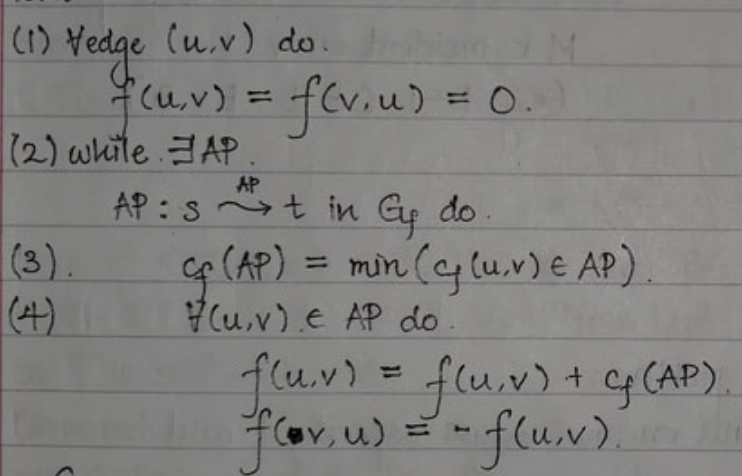 (1) ∀edge (u,v) do.
f(u,v) = f(v,u) = 0.
(2) while ∃AP.
AP : s ⇝ᴬᴾ t in Gf do.
(3). cf(AP) = min(cf(u,v) ∈ AP).
(4) ∀(u,v) ∈ AP do.
f(u,v) = f(u,v) + cf(AP).
f(v,u) = - f(u,v).